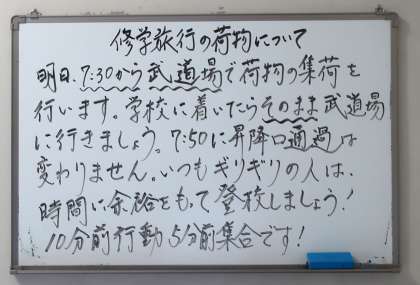 修学旅行の荷物について
明日、7:30から武道場で荷物の集荷を
行います。学校に着いたらそのまま武道場
に行きましょう。7:50に昇降口通過は
変わりません。いつもギリギリの人は、
時間に余裕をもって登校しましょう!
10分前行動 5分前集合です!